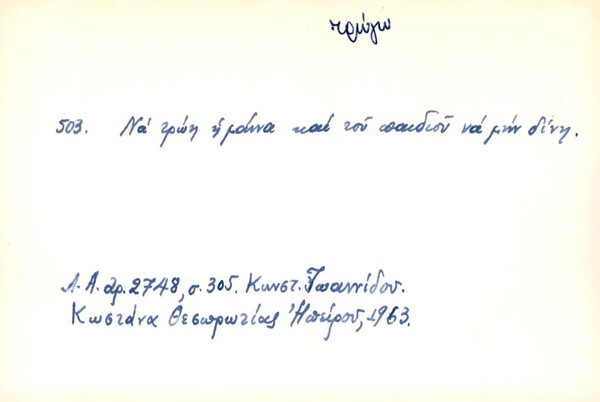 τρώγω
503. Νά τρώη ἡ μάννα καί τοῦ παιδιοῦ νά μήν δίνη.
Λ.Α. ἀρ. 2748, σ. 305. Κωνστ. Ἰωαννίδου.
Κωστάνα Θεσπρωτίας Ἠπείρου, 1963.